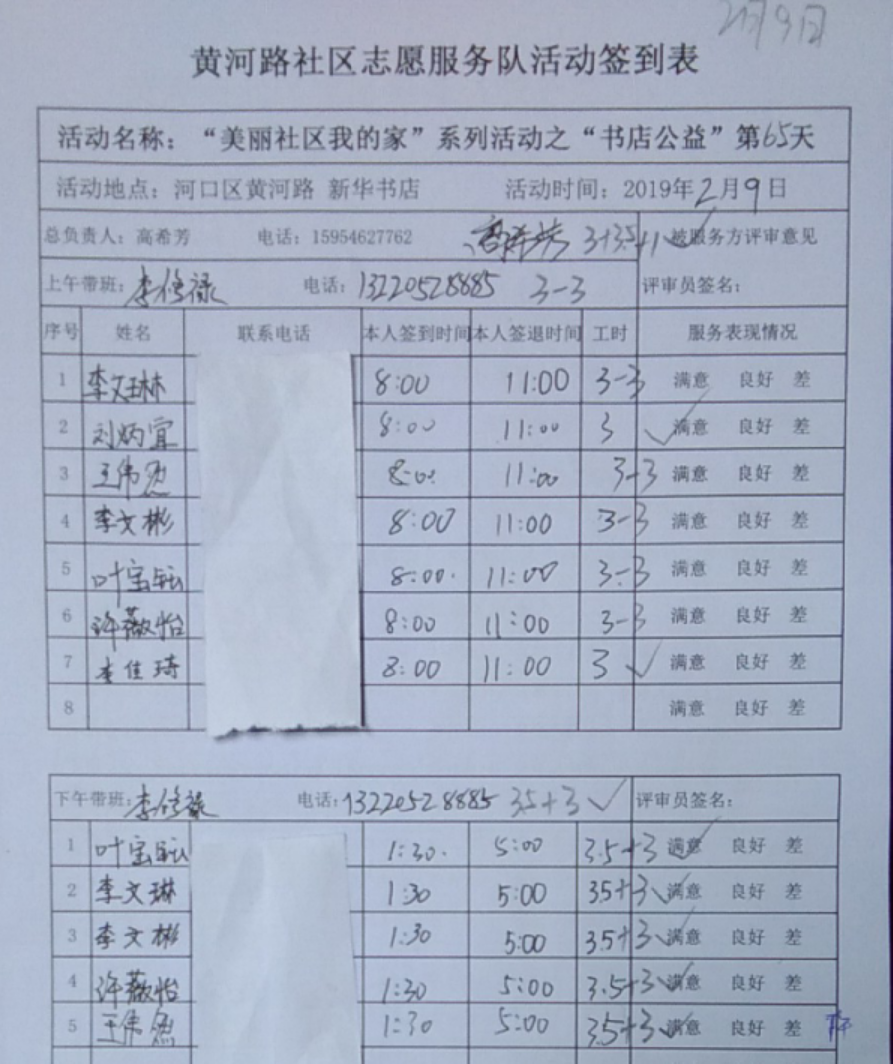 2月9日
黄河路社区志愿服务队活动签到表
活动名称：“美丽社区我的家”系列活动之“书店公益”第65天
活动地点：河口区黄河路 新华书店 活动时间：2019年2月9日
总负责人：高希芳 电话：15954627762 高希芳 3+3.5+1 被服务方评审意见
上午带班：李修禄 电话：13220528885 3-3 评审员签名：
序号 姓名 联系电话 本人签到时间 本人签退时间 工时 服务表现情况
1 李文琳 8:00 11:00 3-3 满意 良好 差
2 刘炳宜 8:00 11:00 3 ✓ 满意 良好 差
3 王伟 8:00 11:00 3-3 满意 良好 差
4 李文彬 8:00 11:00 3-3 满意 良好 差
5 叶宝 8:00. 11:00 3-3 满意 良好 差
6 许薇怡 8:00 11:00 3-3 满意 良好 差
7 李佳琦 8:00 11:00 3 ✓ 满意 良好 差
8 满意 良好 差
下午带班：李修禄 电话：13220528885 3.5+3 ✓ 评审员签名：
1 叶宝 1:30. 5:00 3.5+3 ✓ 满意 良好 差
2 李文琳 1:30 5:00 3.5+3 ✓ 满意 良好 差
3 李文彬 1:30 5:00 3.5+3 ✓ 满意 良好 差
4 许薇怡 1:30 5:00 3.5+3 ✓ 满意 良好 差
5 王伟 1:30 5:00 3.5+3 ✓ 满意 良好 差